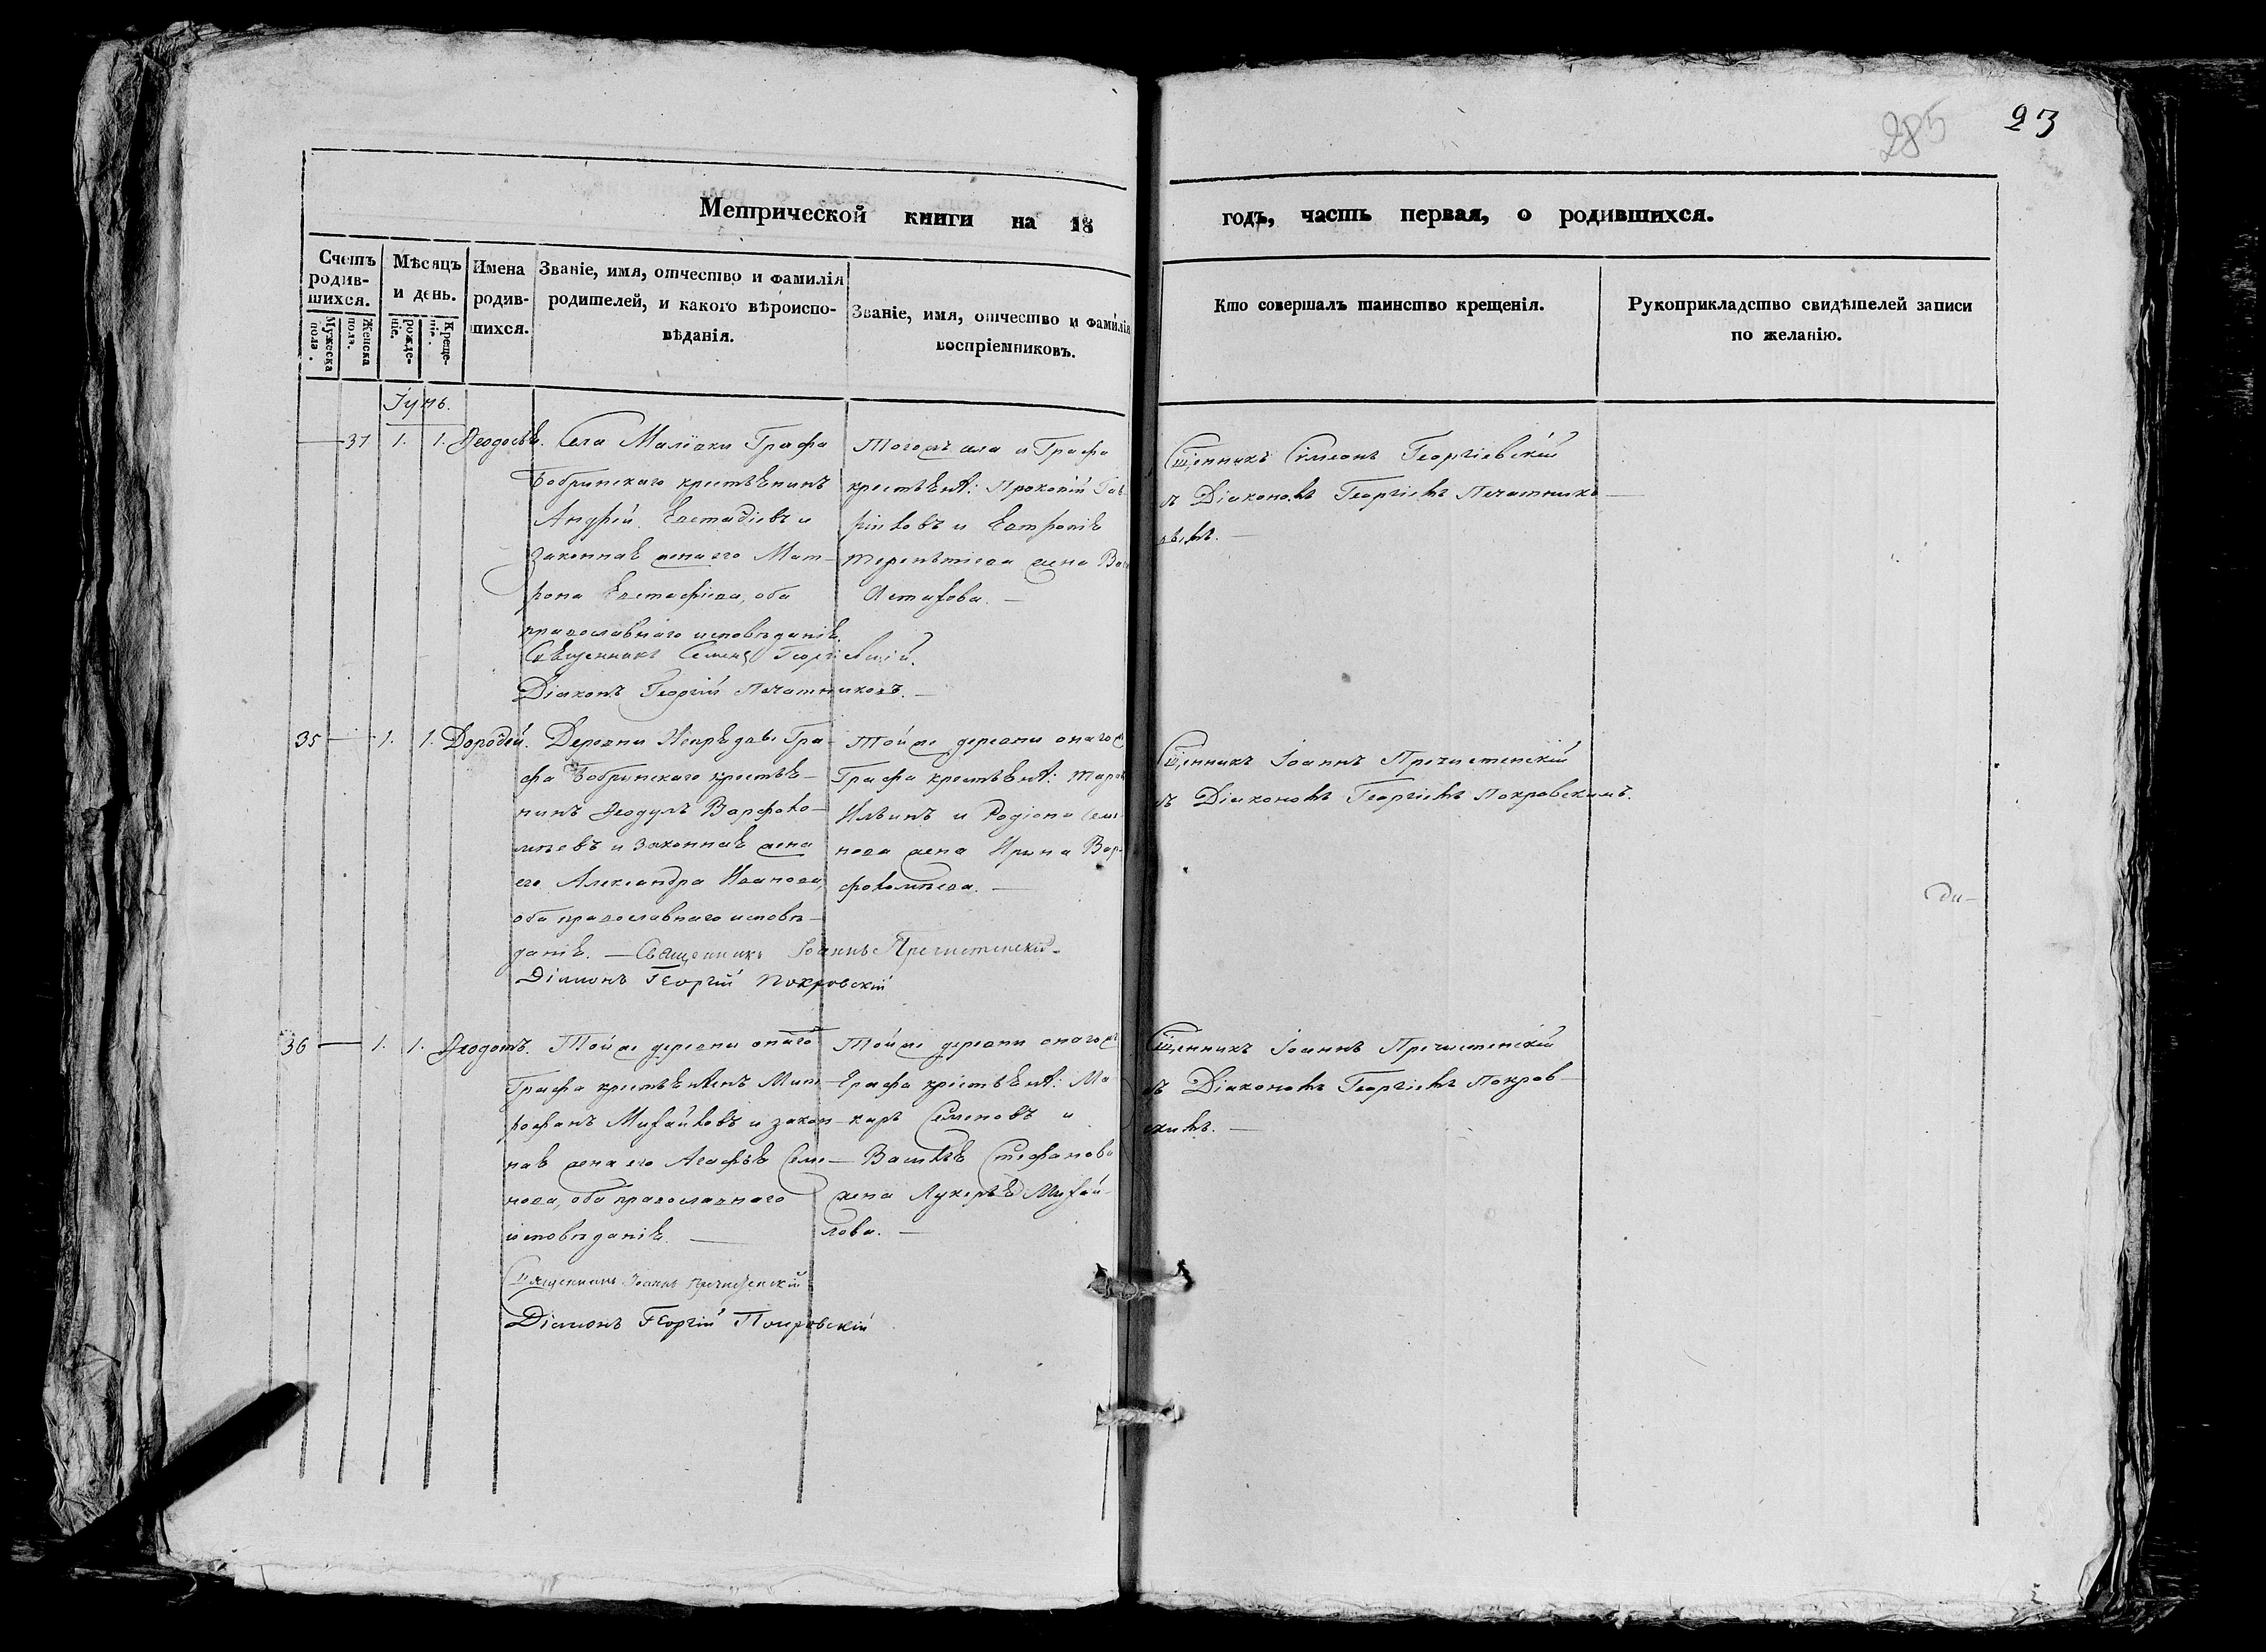 285
23
Метрической книги на 18
годъ, часть первая, о родившихся.
Счетъ родив-шихся.
Мужеска пола.
Женска пола.
Мѣсяцъ и день.
рожде-нiе.
Креще-нiе.
Имена родив-шихся.
Званiе, имя, отчество и фамилiя
родителей, и какого вѣроиспо-
вѣданiя.
Званiе, имя, отчество и фамилiя
воспрiемниковъ.
Кто совершалъ таинство крещенiя.
Рукоприкладство свидѣтелей записи
по желанiю.
Iунь.
37 1. 1.
Села Малiовки Графа
Бобринскаго крестьянинъ
Андрей
законная жена его Мат-
рона Евстафiева, оба
православнаго исповѣданiя.
Священникъ Семенъ Георгiевскiй.
Дiаконъ Георгiй Печатниковъ.
Тогожъ села и Графа
крестьян: Прокопiй Гав-
риловъ и
Терентiева жена
Астахова.
Сщенникъ Сѵмеонъ Георгiевскiй
съ Дiакономъ Георгiемъ Печатнико-
вымъ.
35 1. 1. Дородей.
Деревни Непрядвы Гра-
фа Бобринскаго крестья-
нинъ Ѳеодулъ Варфоло-
мѣевъ и законная жена
его Александра Иванова,
оба православнаго исповѣ-
данiя. — Священникъ Iоаннъ Пречистенскiй
Дiаконъ Георгiй Покровскiй
Той же деревни онагожъ
Графа крестьян:
Ильинъ и Родiона Семе-
нова жена Ирина Вар-
фоломѣева.
Сщенникъ Iоаннъ Пречистенскiй
съ Дiакономъ Георгiемъ Покровскимъ.
36 1. 1. Ѳеодотъ.
Той же деревни онаго
Графа крестьянинъ Мит-
рофанъ Михайловъ и закон-
ная жена его Агафья Семе-
нова, оба православнаго
исповѣданiя.
Священникъ Iоаннъ Пречистенскiй
Дiаконъ Георгiй Покровскiй
Той же деревни онагожъ
Графа крестьян: Ма-
каръ Семеновъ и
Василья Стефанова
жена Лукерья Михай-
лова.
Сщенникъ Iоаннъ Пречистенскiй
съ Дiакономъ Георгiемъ Покров-
скимъ.